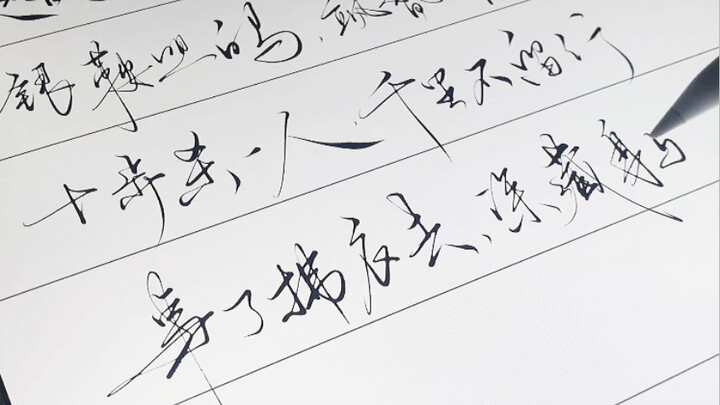 银鞍照白马,飒沓
十步杀一人,千里不留行
事了拂衣去,深藏身与